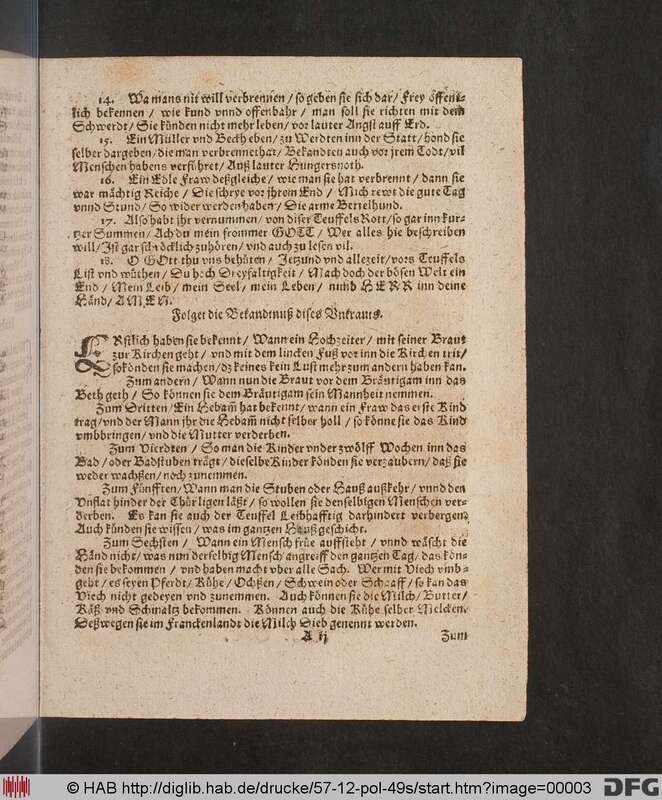 14. Wa mans nit will verbrennen / so geben sie sich dar / Frey öffent-
lich bekennen / wie kund vnnd offenbahr / man soll sie richten mit dem
Schwerdt / Sie künden nicht mehr leben / vor lauter Angst auff Erd.
15. Ein Müller vnd Beckh eben / zu Werdten inn der Statt / hond sie
selber dargeben / die man verbrennet hat / Bekandten auch vor jrem Todt / vil
Menschen habens verführet / Auß lauter Hungersnoth.
16. Ein Edle Fraw deßgleiche / wie man sie hat verbrent / dann sie
war mächtig Reiche / Die schrye vor jhrem End / Mich rewt die gute Tag
vnnd Stund / So wider werden haben / Die arme Bettelhund.
17. Also habt jhr vernummen / von diser Teuffels Rott / so gar inn kur-
tzer Summen / Ach du mein frommer GOTT / Wer alles hie beschreiben
will / Ist gar schröcklich zuhören / vnd auch zu lesen vil.
18. O GOtt thu vns behüten / Jetzund vnd allezeit / vors Teuffels
List vnd wüthen / Du hoch Dreyfaltigkeit / Mach doch der bösen Welt ein
End / Mein Leib / mein Seel / mein Leben / nimb HERR inn deine
Händ / AMEN.
Folget die Bekandtnuß dises Vnkrauts.
ERstlich haben sie bekennt / Wann ein Hochzeiter / mit seiner Braut
zur Kirchen geht / vnd mit dem lincken Fuß vor inn die Kirchen trit /
so könden sie machen / dz keines kein Lust mehr zum andern haben kan.
Zum andern / Wann nun die Braut vor dem Bräutigam inn das
Beth geth / So können sie dem Bräutigam sein Mannheit nemmen.
Zum Dritten / Ein Hebam̄ hat bekent / wann ein Fraw das erste Kind
trag / vnd der Mann jhr die Hebam̄ nicht selber holl / so könne sie das Kind
vmbbringen / vnd die Mutter verderben.
Zum Vierdten / So man die Kinder vnder zwölff Wochen inn das
Bad / oder Badstuben trägt / dieselbe Kinder könden sie verzaubern / daß sie
weder wachßen / noch zunemmen.
Zum Fünfften / Wann man die Stuben oder Hauß außkehr / vnnd den
Vnflat hinder der Thür ligen läßt / so wollen sie denselbigen Menschen ver-
derben. Es kan sie auch der Teuffel Leibhafftig darhindert verbergen
Auch künden sie wissen / was im gantzen Hauß geschicht.
Zum Sechsten / Wann ein Mensch früe auffsteht / vnnd wäscht die
Händ nicht / was nun derselbig Mensch angreiff den gantzen Tag / das kön-
den sie bekommen / vnd haben macht vber alle Sach. Wer mit Viech vmb-
gebt / es seyen Pferdt / Kühe / Ochßen / Schwein oder Schaaff / so kan das
Viech nicht gedeyen vnd zunemmen. Auch können sie die Milch / Butter /
Käß vnd Schmaltz bekommen. Können auch die Kühe selber Melcken.
Deßwegen sie im Franckenlandt die Milch Dieb genennt werden.
A ij Zum
© HAB http://diglib.hab.de/drucke/57-12-pol-49s/start.htm?image=00003
DFG